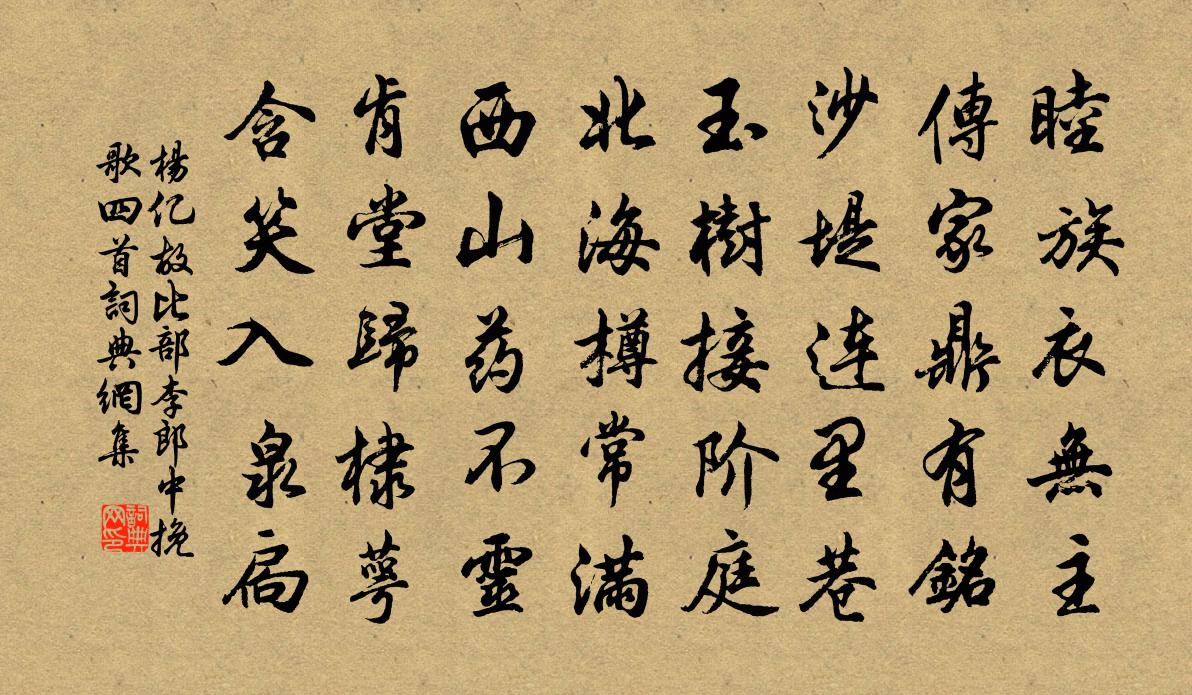 睦族衣無主
傳家鼎有銘
沙堤连里巷
玉樹接阶庭
北海樽常滿
西山药不靈
肯堂歸棣萼
含笑入泉扃
楊亿故比部李郎中挽
歌四首詞典網集
詞典
网印